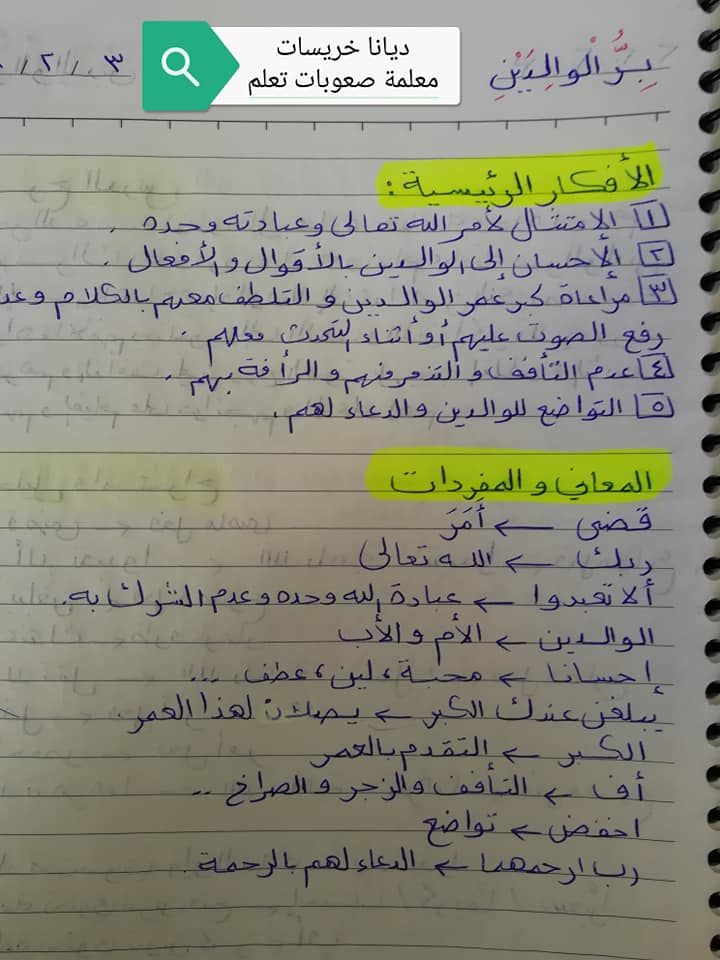 ديانا خريسات
معلمة صعوبات تعلم
بِرُّ الْوالِدَيْنِ
٣ / ٢ /
الأفكار الرئيسية :
١ الامتثال لأمر الله تعالى وعبادته وحده .
٢ الإحسان إلى الوالدين بالأقوال والأفعال .
٣ مراعاة كبر عمر الوالدين و التلطف معهم بالكلام و
رفع الصوت عليهم أو أثناء التحدث معهم .
٤ عدم التأفف و التذمر منهم و الرأفة بهم .
٥ التواضع للوالدين والدعاء لهم .
المعاني و المفردات
قضى ← أَمَرَ
ربك ← الله تعالى
ألا تعبدوا ← عبادة الله وحده وعدم الشرك به .
الوالدين ← الأم والأب
إحسانا ← محبة ، لين ، عطف ...
يبلغن عندك الكبر ← يصلان لهذا العمر .
الكبر ← التقدم بالعمر
أف ← التأفف والزجر و الصراخ ..
اخفض ← تواضع
رب ارحمهما ← الدعاء لهم بالرحمة .